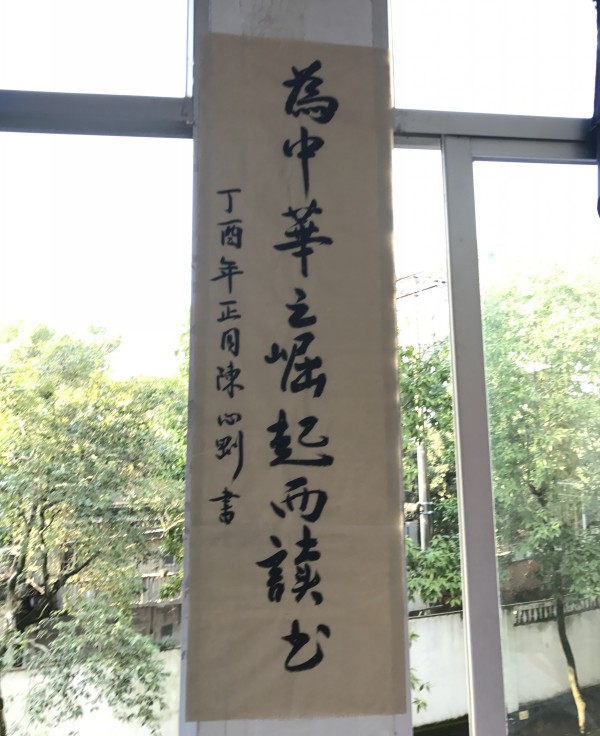 為中華之崛起而讀书
丁酉年正月陳心剛書